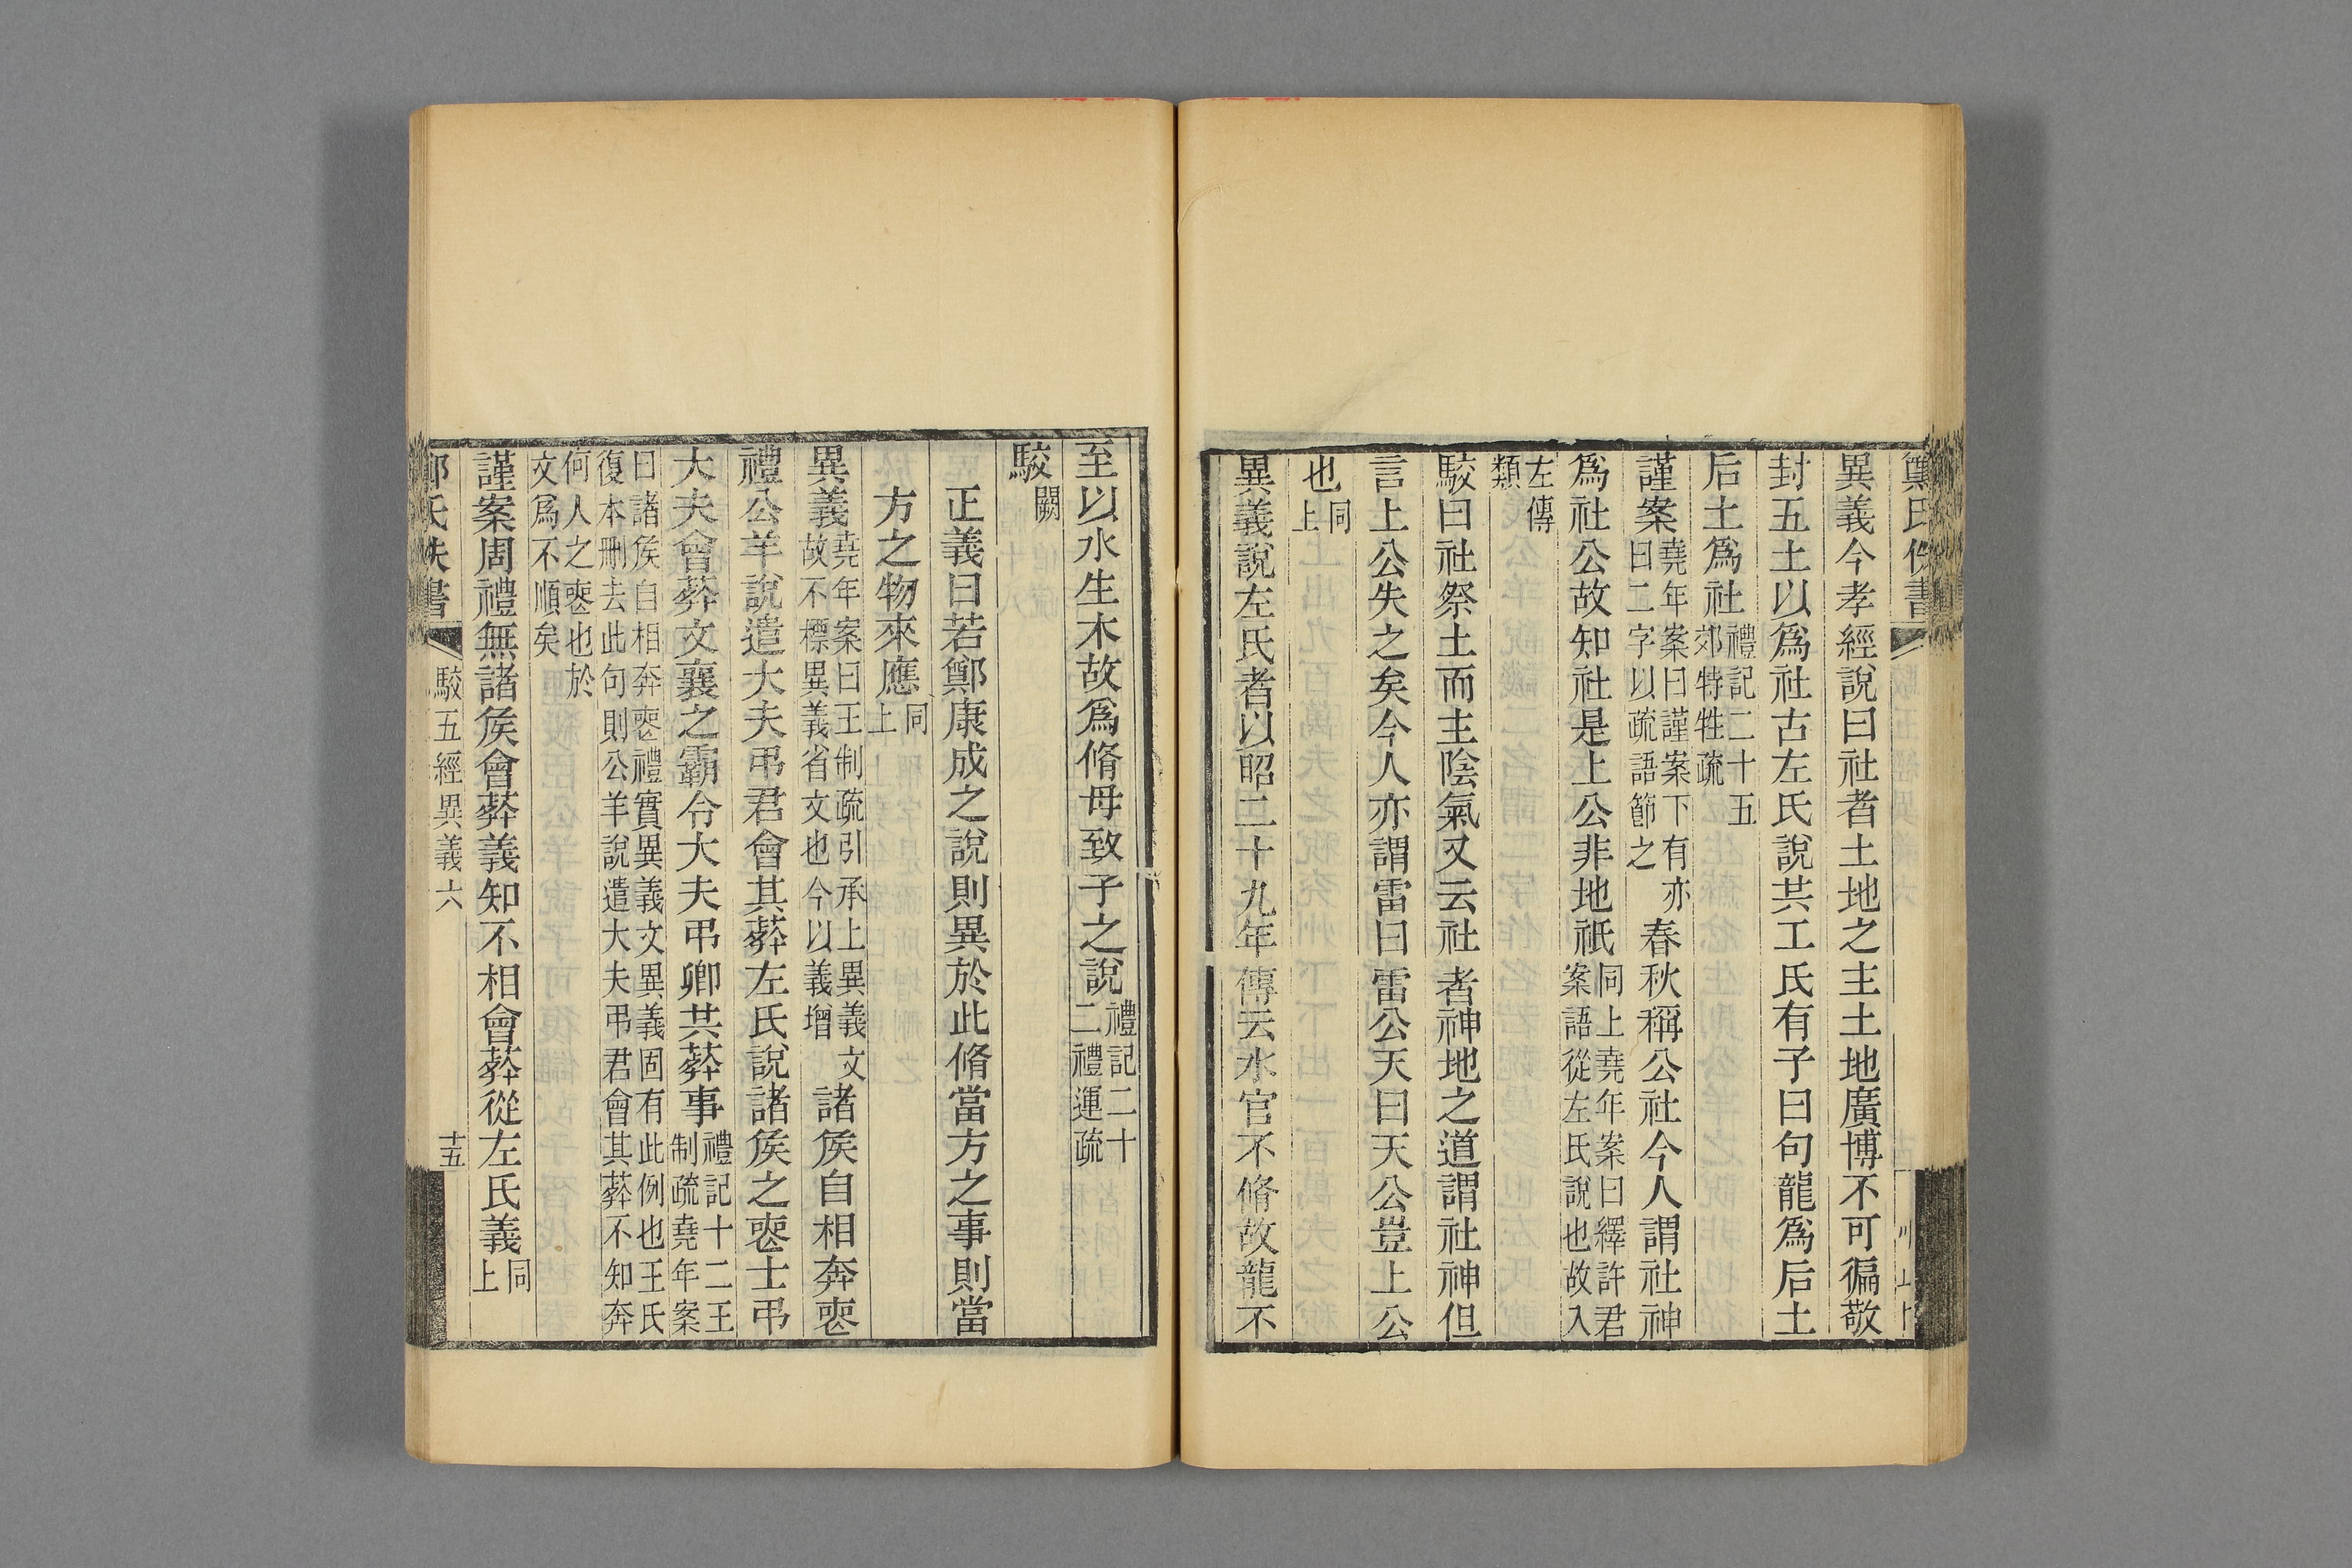 鄭氏佚書
異義今孝經說曰社者土地之主土地廣博不可徧敬
封五土以爲社古左氏說共工氏有子曰句龍爲后土
后土爲社禮記二十五郊特牲疏
謹案堯年案曰謹案下有亦曰二字以疏語節之春秋稱公社今人謂社神
爲社公故知社是上公非地祇同上堯年案曰繹許君案語從左氏說也故入
左傳類
駮曰社祭土而主陰氣又云社者神地之道謂社神但
言上公失之矣今人亦謂雷曰雷公天曰天公豈上公
也同上
異義說左氏者以昭二十九年傳云水官不脩故龍不
至以水生木故爲脩母致子之說禮記二十二禮運疏
駮闕
正義曰若鄭康成之說則異於此脩當方之事則當
方之物來應同上
異義堯年案曰王制疏引承上異義文故不標異義省文也今以義增諸矦自相奔喪
禮公羊說遣大夫弔君會其葬左氏說諸矦之喪士弔
大夫會葬文襄之霸令大夫弔卿共葬事禮記十二王制疏堯年案
曰諸矦自相奔喪禮實異義文異義固有此例也王氏
復本刪去此句則公羊說遣大夫弔君會其葬不知奔
何人之喪也於
文爲不順矣
謹案周禮無諸矦會葬義知不相會葬從左氏義同上
鄭氏佚書 駮五經異義六 十五